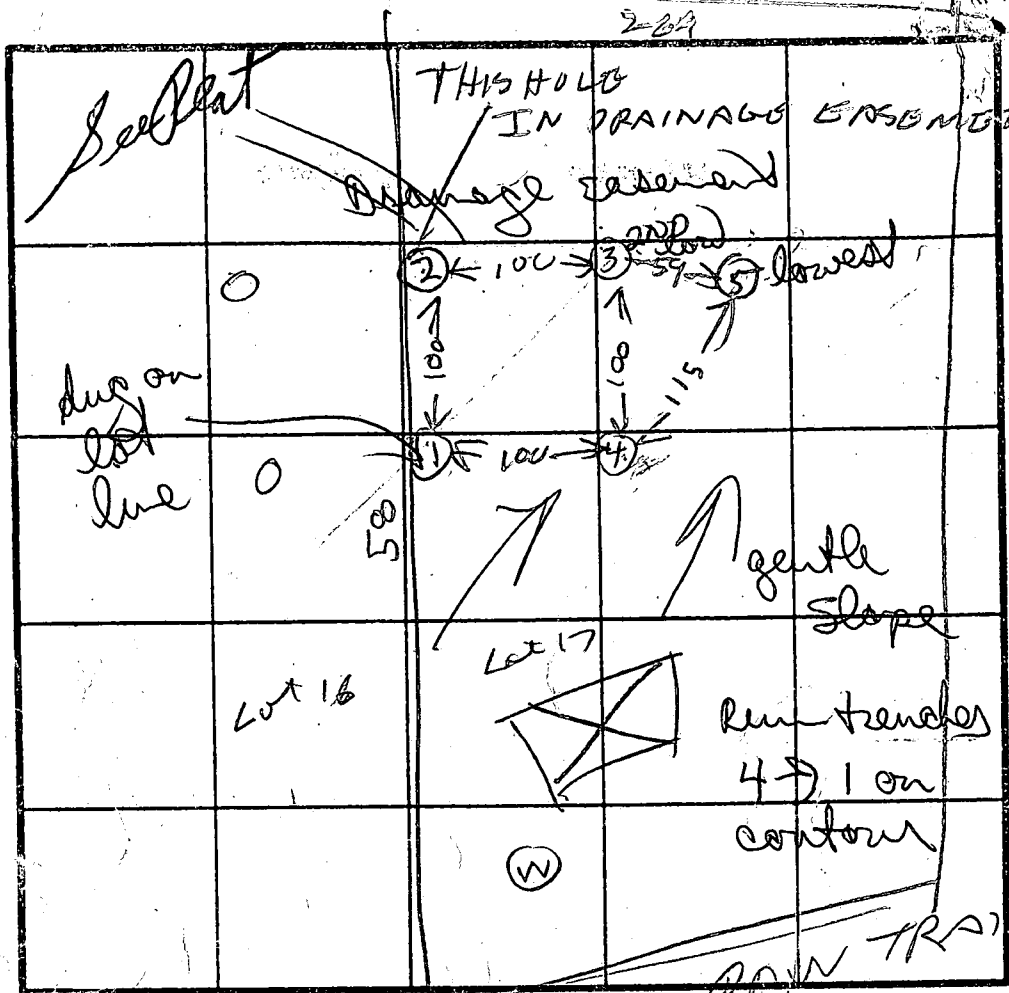 See Plat
THIS HOLE
IN DRAINAGE EASEME
Drainage easement
2ND
low
2 100 3 59 5 lowest
100
100
115
dug on
lot
line
1 100 4
500
gentle
slope
Lot 17
Lot 16
Run trenches
4 → 1 on
contour
W
TRA